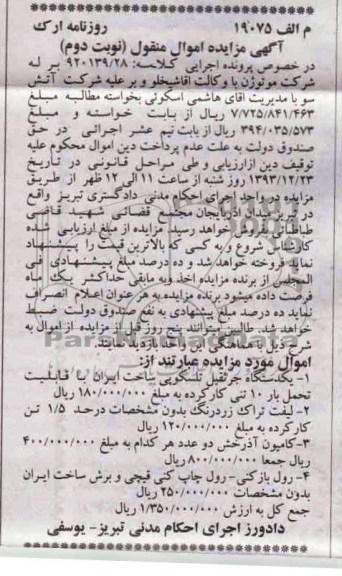 م الف ۱۹۰۷۵ روزنامه ارک
آگهی مزایده اموال منقول (نوبت دوم)
در خصوص پرونده اجرایی کلاسه: ۹۲۰۱۳۹/۲۸ بر له
شرکت موتوژن با وکالت آقاشبخلو و بر علیه شرکت آتش
سو با مدیریت آقای هاشمی اسکوئی بخواسته مطالبه مبلغ
۷/۷۲۵/۸۴۱/۴۶۳ ریال از بابت خواسته و مبلغ
۳۹۴/۰۳۵/۵۷۳ ریال از بابت نیم عشر اجرائی در حق
صندوق دولت به علت عدم پرداخت دین اموال محکوم علیه
توقیف دین ازارزیابی و طی مراحل قانونی در تاریخ
۱۳۹۳/۱۲/۲۳ روز شنبه از ساعت ۱۱ الی ۱۲ ظهر از طریق
مزایده در واحد اجرای احکام مدنی دادگستری تبریز واقع
در تبریز میدان آذربایجان مجتمع قضائی شهید قاضی
طباطبائی بفروش خواهد رسید. مزایده از مبلغ ارزیابی شده
کارشناس شروع و به کسی که بالاترین قیمت را پیشنهاد
نماید فروخته خواهد شد و ده درصد مبلغ پیشنهادی فی
المجلس از برنده مزایده اخذ و به مابقی حداکثر یک ماه
فرصت داده میشود برنده مزایده به هر عنوان اعلام انصراف
نماید ده درصد مبلغ پیشنهادی به نفع صندوق دولت ضبط
خواهد شد. طالبین میتوانند پنج روز قبل از مزایده از اموال به
شرح ذیل با هماهنگی این واحد بازدید نمایند.
اموال مورد مزایده عبارتند از:
۱- یکدستگاه جرثقیل تلسکوپی ساخت ایران با قابلیت
تحمل بار ۱۰ تنی کارکرده به مبلغ ۱۸۰/۰۰۰/۰۰۰ ریال
۲- لیفت تراک زردرنگ بدون مشخصات درحد ۱/۵ تن
کارکرده به مبلغ ۱۲۰/۰۰۰/۰۰۰ ریال
۳-کامیون آذرخش دو عدد هر کدام به مبلغ ۴۰۰/۰۰۰/۰۰۰
ریال جمعا ۸۰۰/۰۰۰/۰۰۰ ریال
۴- رول بازکنی- رول چاپ کنی قیچی و برش ساخت ایران
بدون مشخصات ۲۵۰/۰۰۰/۰۰۰ ریال
جمع کل به ارزش ۱/۳۵۰/۰۰۰/۰۰۰ ریال
دادورز اجرای احکام مدنی تبریز- یوسفی